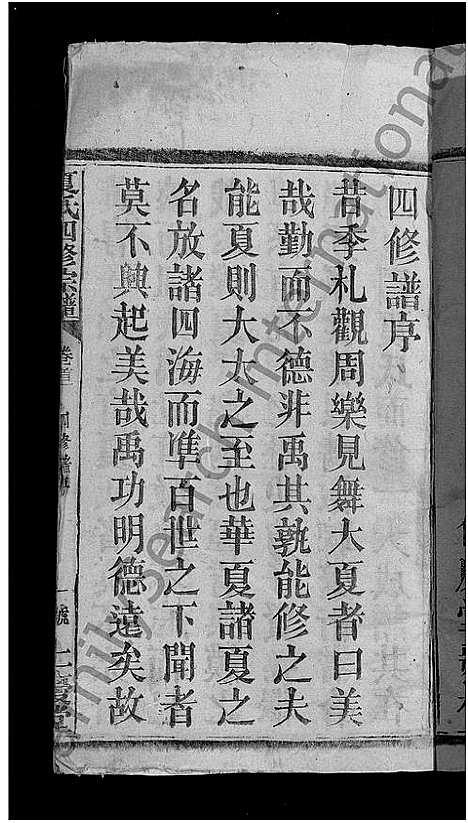 四修譜序
昔季札觀周樂見舞大夏者曰美
哉勤而不德非禹其孰能修之夫
能夏則大大之至也華夏諸夏之
名放諸四海而準百世之下聞者
莫不興起美哉禹功明德遠矣故
夏氏四修宗譜 卷首 四修譜序 一 號